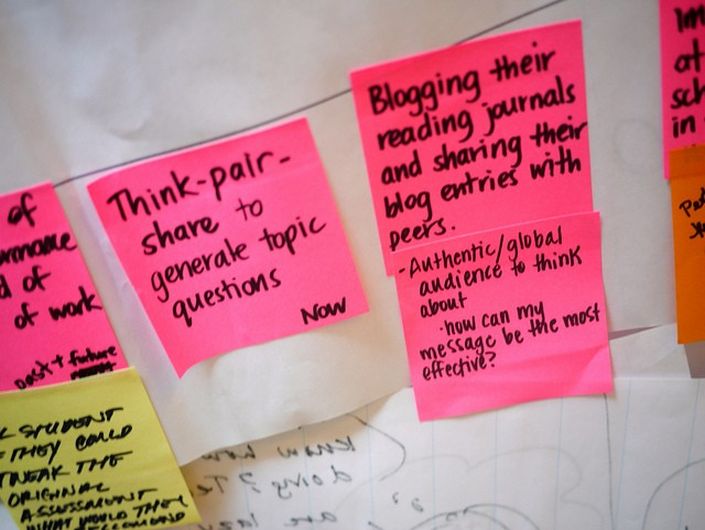 of
d of
of work
past + future
Think-pair-
share to
generate topic
questions
Now
Blogging their
reading journals
and sharing their
blog entries with
peers.
- Authentic/global
audience to think
about
· how can my
message be the most
effective?
Im
at
sch
in
STUDENT
THEY COULD
TWEAK THE
ORIGINAL
ASSESSMENT
WHAT WOULD THEY
know how
doing?
are